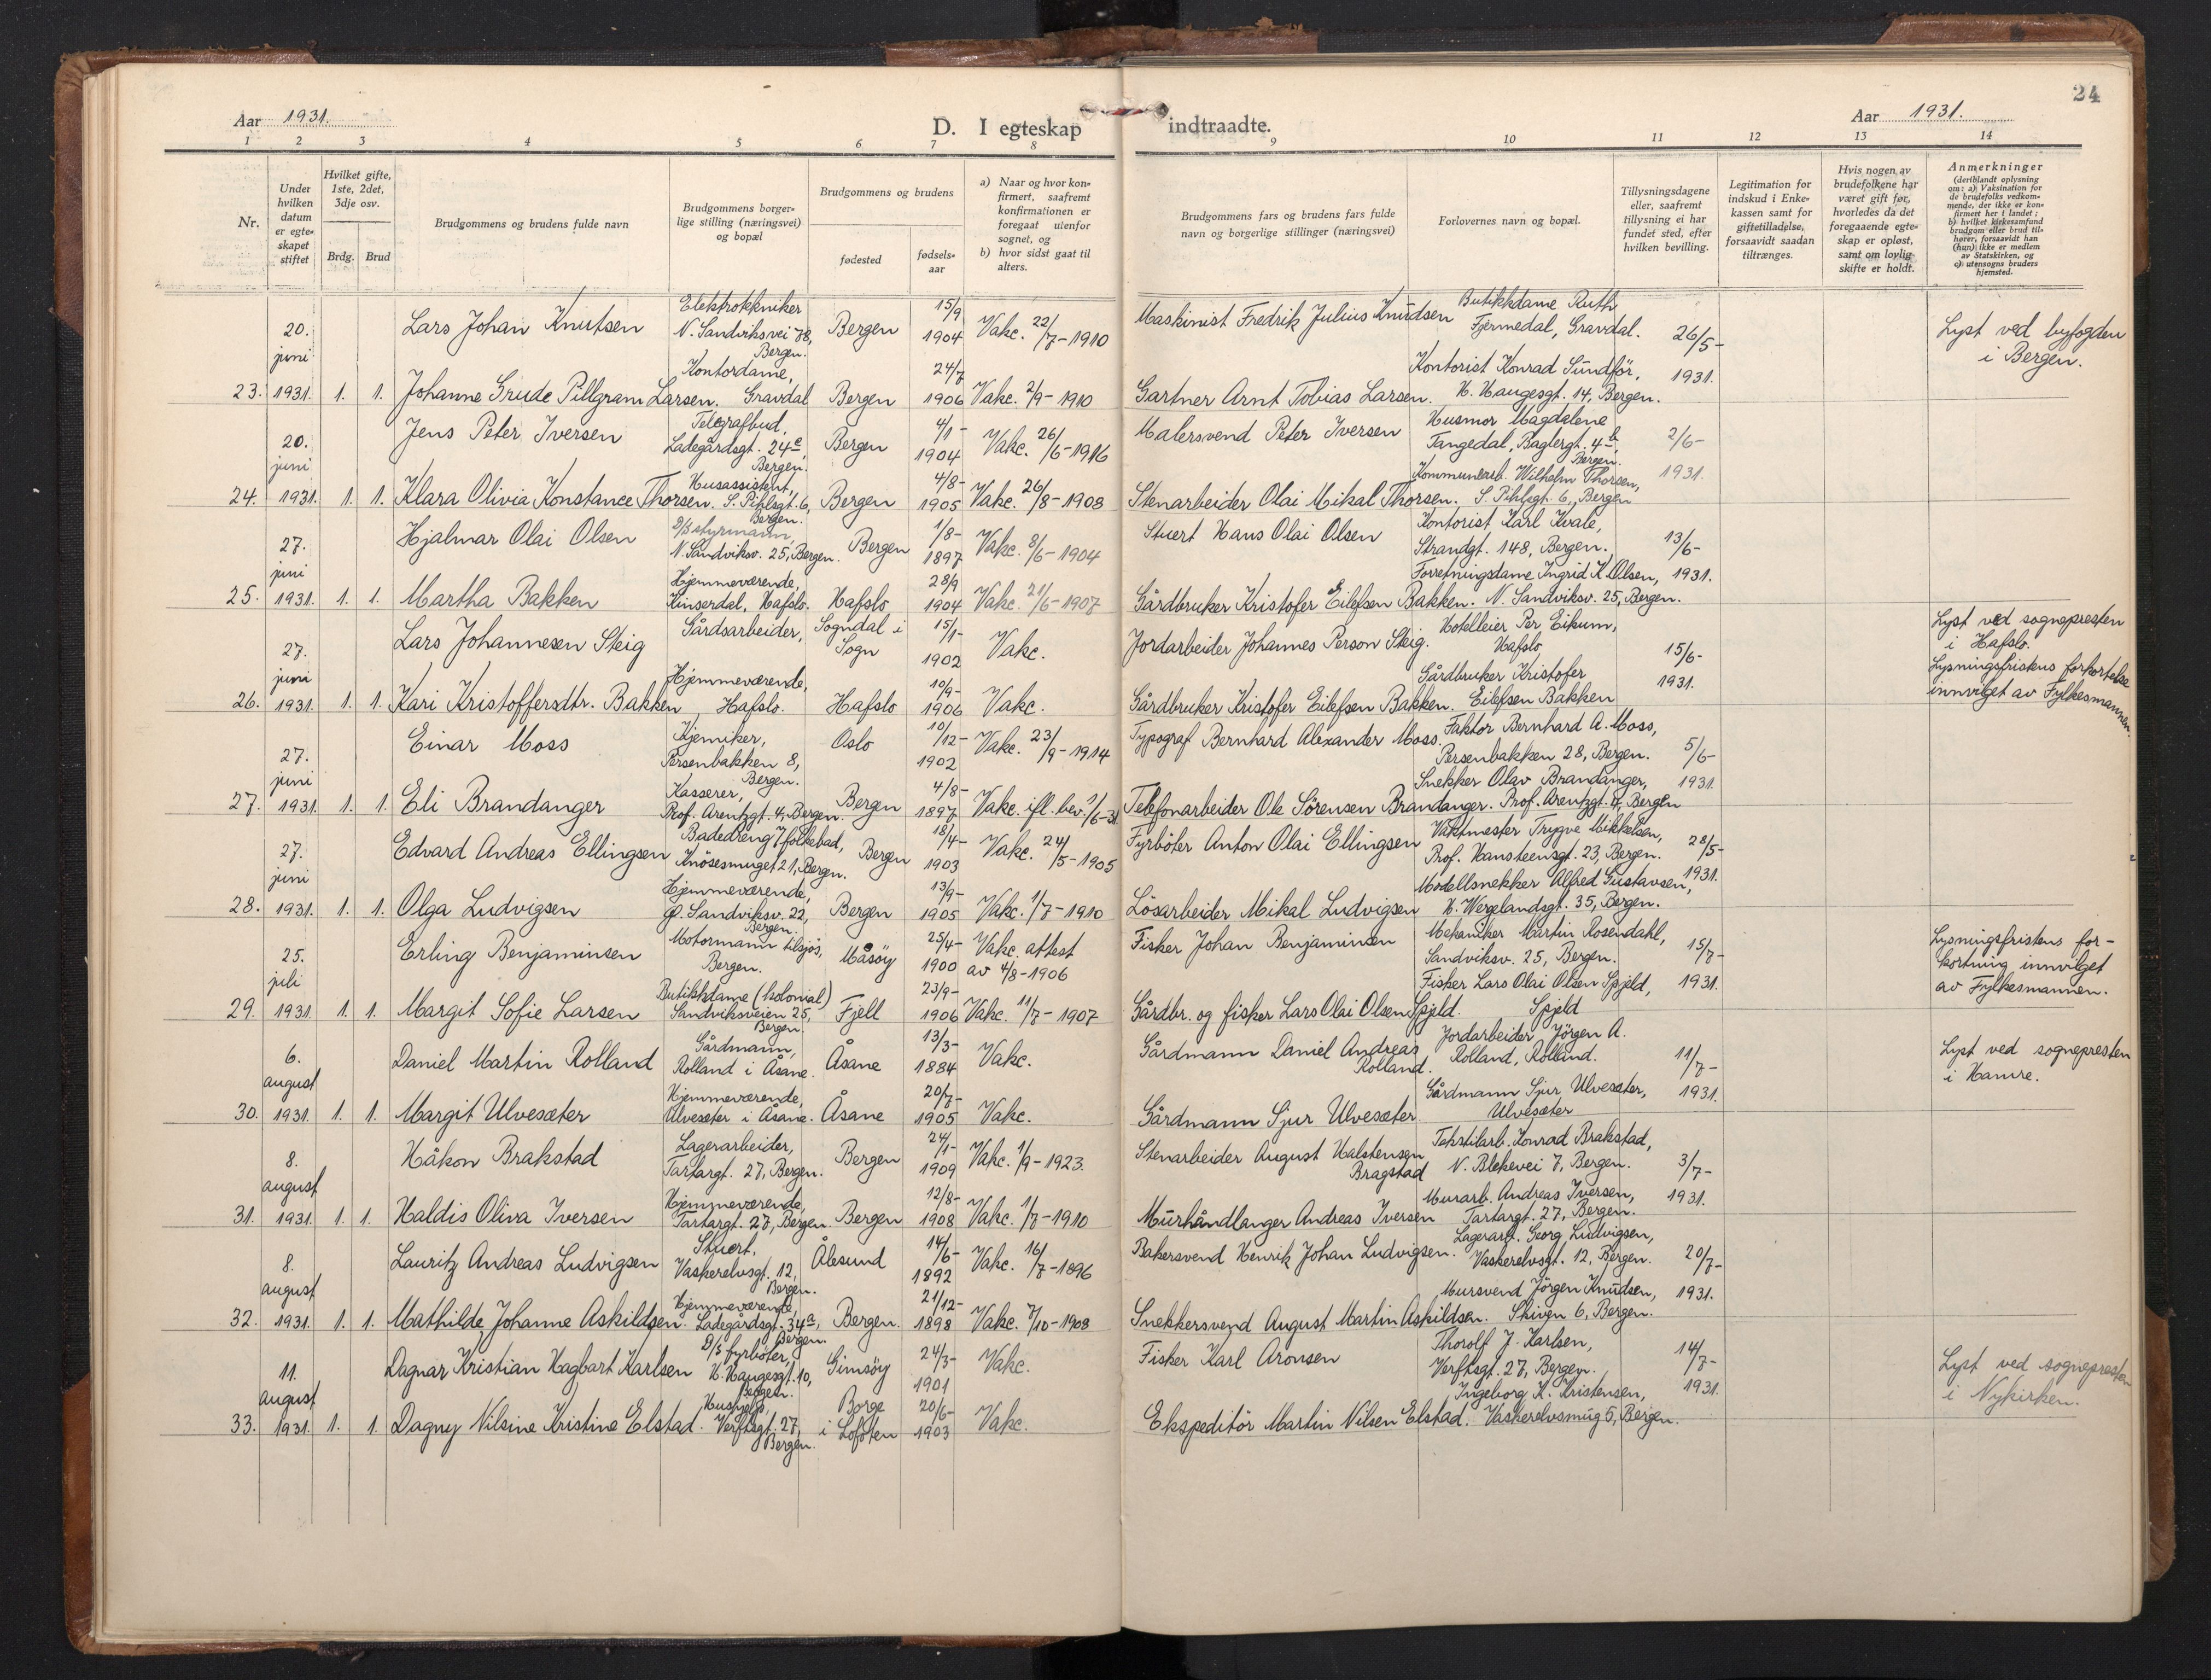 Aar 1931.
D. I egteskap indtraadte.
Aar 1931.
24
1 2 3 4 5 6 7 8 9 10 11 12 13 14
Nr.
Under hvilken datum er egteskapet stiftet
Hvilket gifte, 1ste, 2det, 3dje osv.
Brdg. Brud
Brudgommens og brudens fulde navn
Brudgommens borgerlige stilling (næringsvei) og bopæl
Brudgommens og brudens
fødested
fødselsaar
a) Naar og hvor konfirmert, saafremt konfirmationen er foregaat utenfor sognet, og
b) hvor sidst gaat til alters.
Brudgommens fars og brudens fars fulde navn og borgerlige stillinger (næringsvei)
Forlovernes navn og bopæl.
Tillysningsdagene eller, saafremt tillysning ei har fundet sted, efter hvilken bevilling.
Legitimation for indskud i Enkekassen samt for giftetilladelse, forsaavidt saadan tiltrænges.
Hvis nogen av brudefolkene har været gift før, hvorledes da det foregaaende egteskap er opløst, samt om lovlig skifte er holdt.
Anmerkninger (deriblandt oplysning om: a) Vaksination for de brudefolks vedkommende, der ikke er konfirmert her i landet; b) hvilket kirkesamfund brudgom eller brud tilhører, forsaavidt han (hun) ikke er medlem av Statskirken, og c) utensogns bruders hjemsted.
23. 20. juni 1931. 1. 1.
Lars Johan Knutsen Elektrotekniker N. Sandviksvei 78, Bergen. Bergen 15/9 1904 Vakc. 22/7-1910 Maskinist Fredrik Julius Knudsen Butikkdame Ruth Fjermedal, Gravdal. 26/5- 1931. Lyst ved byfogden i Bergen.
Johanne Grude Pillgram Larsen. Kontordame, Gravdal Bergen 24/7 1906 Vakc. 2/9-1910 Gartner Arnt Tobias Larsen. Kontorist Konrad Sundför, H. Haugesgt. 14, Bergen.
24. 20. juni 1931. 1. 1.
Jens Peter Iversen Telegrafbud, Ladegårdsgt. 24c, Bergen. Bergen 4/1- 1904 Vakc. 26/6-1916 Malersvend Peter Iversen Husmor Magdalene Tangedal, Baglergt. 4b, Bergen. 2/6- 1931.
Klara Olivia Konstance Thorsen. Husassistent, S. Pihlsgt. 6, Bergen. Bergen 4/8- 1905 Vakc. 26/8-1908 Stenarbeider Olai Mikal Thorsen. Kommunearb. Wilhelm Thorsen, S. Pihlsgt. 6, Bergen
25. 27. juni 1931. 1. 1.
Hjalmar Olai Olsen D/S styrmann, N. Sandviksv. 25, Bergen. Bergen 1/8- 1897 Vakc. 8/6-1904 Stuert Hans Olai Olsen Kontorist Karl Kvale, Strandgt. 148, Bergen. 13/6- 1931.
Martha Bakken Hjemmeværende, Kinserdal, Hafslo. Hafslo 28/9 1904 Vakc. 21/6-1907 Gårdbruker Kristofer Eilefsen Bakken. Forretningsdame Ingrid K. Olsen, N. Sandviksv. 25, Bergen.
26. 27. juni 1931. 1. 1.
Lars Johannesen Steig Gårdsarbeider, Sogndal i Sogn 15/1- 1902 Vakc. Jordarbeider Johannes Person Steig. Hotelleier Per Eikum, Hafslo 15/6- 1931. Lyst ved sognepresten i Hafslo. Lysningsfristens forkortelse innvilget av Fylkesmannen.
Kari Kristoffersdtr. Bakken Hjemmeværende, Hafslo. Hafslo 10/9- 1906 Vakc. Gårdbruker Kristofer Eilefsen Bakken. Gårdbruker Kristofer Eilefsen Bakken
27. 27. juni 1931. 1. 1.
Einar Moss Kjemiker, Persenbakken 8, Bergen. Oslo 10/12- 1902 Vakc. 23/9-1914 Typograf Bernhard Alexander Moss. Faktor Bernhard A. Moss, Persenbakken 28, Bergen. 5/6- 1931.
Eli Brandanger Kasserer, Prof. Arentzgt. 4, Bergen. Bergen 4/8- 1897 Vakc. ifl. bev. 1/6-31 Telefonarbeider Ole Sörensen Brandanger. Snekker Olav Brandanger, Prof. Arentzgt. 4, Bergen
28. 27. juni 1931. 1. 1.
Edvard Andreas Ellingsen Badedreng v/folkebad, Knösesmuget 21, Bergen. Bergen 18/4- 1903 Vakc. 24/5-1905 Fyrböter Anton Olai Ellingsen Vaktmester Trygve Mikkelsen, Prof. Hansteensgt. 23, Bergen. 28/5- 1931.
Olga Ludvigsen Hjemmeværende, Ø. Sandviksv. 22, Bergen. Bergen 13/9- 1905 Vakc. 1/7-1910 Lösarbeider Mikal Ludvigsen Modellsnekker Alfred Gustavsen, H. Wergelandsgt. 35, Bergen.
29. 25. juli 1931. 1. 1.
Erling Benjaminsen Motormann tilsjös, Bergen. Måsöy 25/4- 1900 Vakc. attest av 4/8-1906 Fisker Johan Benjaminsen Mekaniker Martin Rosendahl, Sandviksv. 25, Bergen. 15/7- 1931. Lysningsfristens forkortning innvilget av Fylkesmannen.
Margit Sofie Larsen Butikkdame (kolonial) Sandviksveien 25, Bergen. Fjell 23/9- 1906 Vakc. 11/7-1907 Gårdbr. og fisker Lars Olai Olsen Spjeld. Fisker Lars Olai Olsen Spjeld, Spjeld
30. 6. august 1931. 1. 1.
Daniel Martin Rolland Gårdmann, Rolland i Åsane. Åsane 13/3- 1884 Vakc. Gårdmann Daniel Andreas Rolland. Jordarbeider Jörgen A. Rolland, Rolland. 11/7- 1931. Lyst ved sognepresten i Hamre.
Margit Ulvesæter Hjemmeværende, Ulvesæter i Åsane. Åsane 20/7- 1905 Vakc. Gårdmann Sjur Ulvesæter Gårdmann Sjur Ulvesæter, Ulvesæter
31. 8. august 1931. 1. 1.
Håkon Brakstad Lagerarbeider, Tartargt. 27, Bergen. Bergen 24/1- 1909 Vakc. 1/9-1923. Stenarbeider August Halstensen Bragstad Tekstilarb. Konrad Brakstad, N. Blekevei 7, Bergen. 3/7- 1931.
Haldis Oliva Iversen Hjemmeværende, Tartargt. 27, Bergen. Bergen 12/8- 1908 Vakc. 1/7-1910 Murhåndlanger Andreas Iversen Murarb. Andreas Iversen, Tartargt. 27, Bergen.
32. 8. august 1931. 1. 1.
Lauritz Andreas Ludvigsen Stuert, Vaskerelvsgt. 12, Bergen. Ålesund 14/6- 1892 Vakc. 16/7-1896 Bakersvend Henrik Johan Ludvigsen. Lagerarb. Georg Ludvigsen, Vaskerelvsgt. 12, Bergen. 20/7- 1931.
Mathilde Johanne Askildsen. Hjemmeværende, Ladegårdsgt. 34a, Bergen. Bergen. 21/12- 1898 Vakc. 7/10-1908 Snekkersvend August Martin Askildsen. Mursvend Jörgen Knudsen, Skiven 6, Bergen.
33. 11. august 1931. 1. 1.
Dagnar Kristian Hagbart Karlsen D/S fyrböter, H. Haugesgt. 10, Bergen. Gimsöy 24/3- 1901 Vakc. Fisker Karl Aronsen Thorolf J. Karlsen, Verftsgt. 27, Bergen. 14/7- 1931. Lyst ved sognepresten i Nykirken.
Dagny Nilsine Kristine Elstad. Hushjelp, Verftsgt. 27, Bergen. Borge i Lofoten 20/6- 1903 Vakc. Ekspeditör Martin Nilsen Elstad. Ingeborg K. Kristensen, Vaskerelvsmug 5, Bergen.